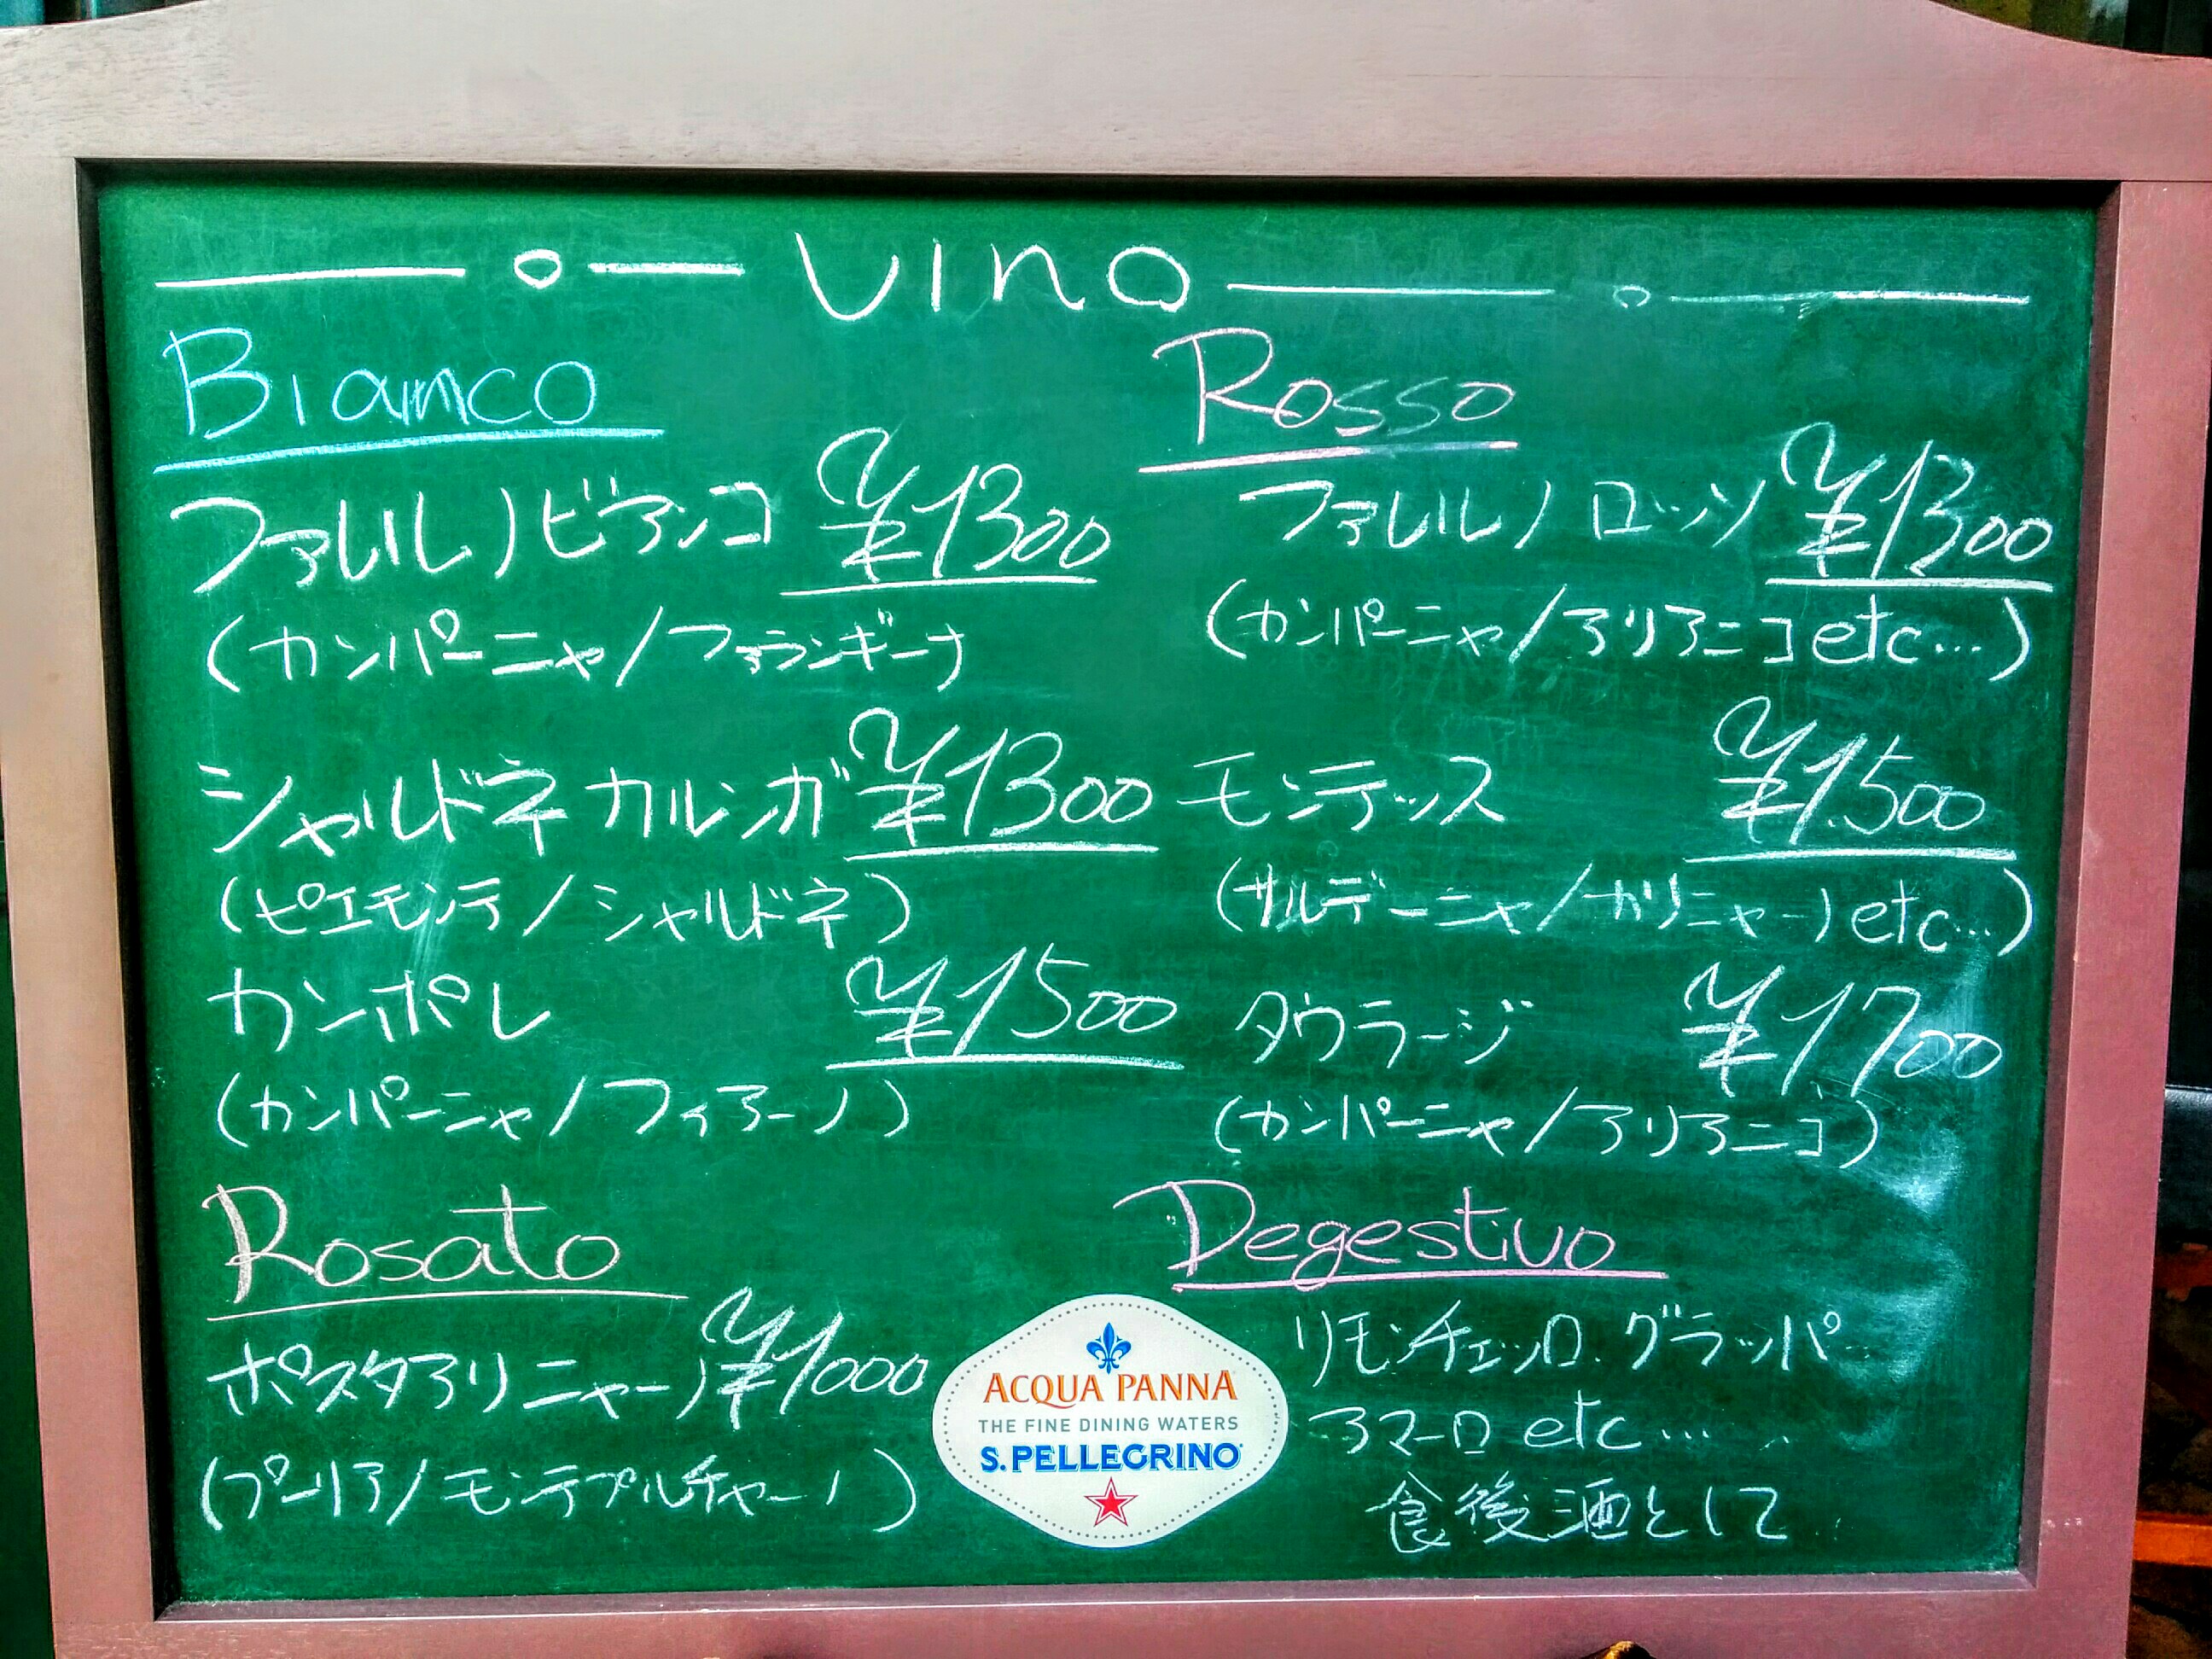 vino
Bianco
ファレルノビアンコ ¥1300
(カンパーニャ/ファランギーナ
シャルドネ カルンガ ¥1300
(ピエモンテ/シャルドネ)
カンポレ ¥1500
(カンパーニャ/フィアーノ)
Rosato
ポスタアリニャーノ ¥1000
(プーリア/モンテプルチャーノ)
Rosso
ファレルノ ロッソ ¥1300
(カンパーニャ/アリアニコ etc…)
モンテッス ¥1.500
(サルデーニャ/カリニャーノ etc…)
タウラージ ¥1700
(カンパーニャ/アリアニコ)
Degestivo
リモンチェッロ.グラッパ
アマーロ etc…
食後酒として
ACQUA PANNA
THE FINE DINING WATERS
S.PELLEGRINO